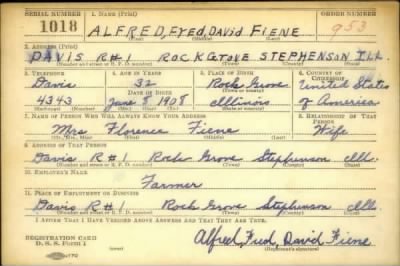 SERIAL NUMBER 1. NAME (Print) ORDER NUMBER
1018 ALFRED, FRED, DAVID FIENE 953
2. ADDRESS (Print)
DAVIS R#1 ROCKGROVE STEPHENSON ILL.
(Number and street or R. F. D. number) (Town) (County) (State)
3. TELEPHONE 4. AGE IN YEARS 5. PLACE OF BIRTH 6. COUNTRY OF CITIZENSHIP
Davis 32 Rock Grove United States
DATE OF BIRTH (Town or county)
4343 June 8 1908 Illinois of America
(Mo.) (Day) (Yr.) (State or country)
7. NAME OF PERSON WHO WILL ALWAYS KNOW YOUR ADDRESS 8. RELATIONSHIP OF THAT PERSON
Mrs Florence Fiene Wife
9. ADDRESS OF THAT PERSON
Davis R#1 Rock Grove Stephenson Ill.
(Number and street or R. F. D. number) (Town) (County) (State)
10. EMPLOYER'S NAME
Farmer
11. PLACE OF EMPLOYMENT OR BUSINESS
Davis R#1 Rock Grove Stephenson Ill.
(Number and street or R. F. D. number) (Town) (County) (State)
I AFFIRM THAT I HAVE VERIFIED ABOVE ANSWERS AND THAT THEY ARE TRUE.
REGISTRATION CARD
D. S. S. Form 1
Alfred, Fred, David Fiene
(Registrant's signature)